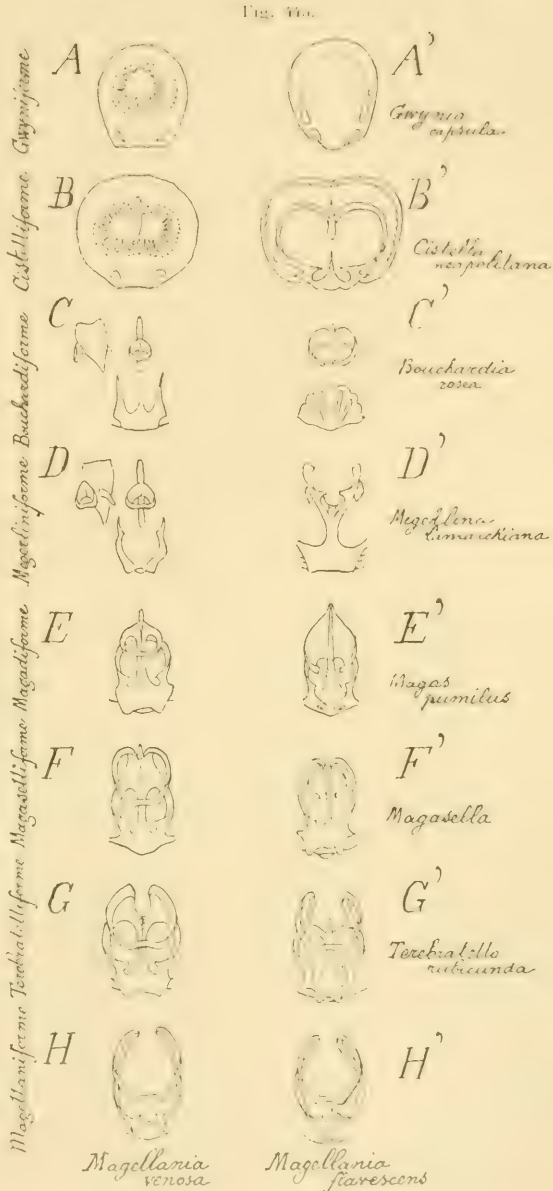 Fig.
Gwyniforme
A
A'
Gwynia
capsula
Cistelliforme
B
B'
Cistella
neapolitana
Bouchardiforme
C
C'
Bouchardia
rosea
Megerliniforme
D
D'
Megerlina
Lamarckiana
Magadiforme
E
E'
Magas
pumilus
Magaselliforme
F
F'
Magasella
Terebratelliforme
G
G'
Terebratella
rubicunda
Magellaniforme
H
H'
Magellania
venosa
Magellania
flavescens